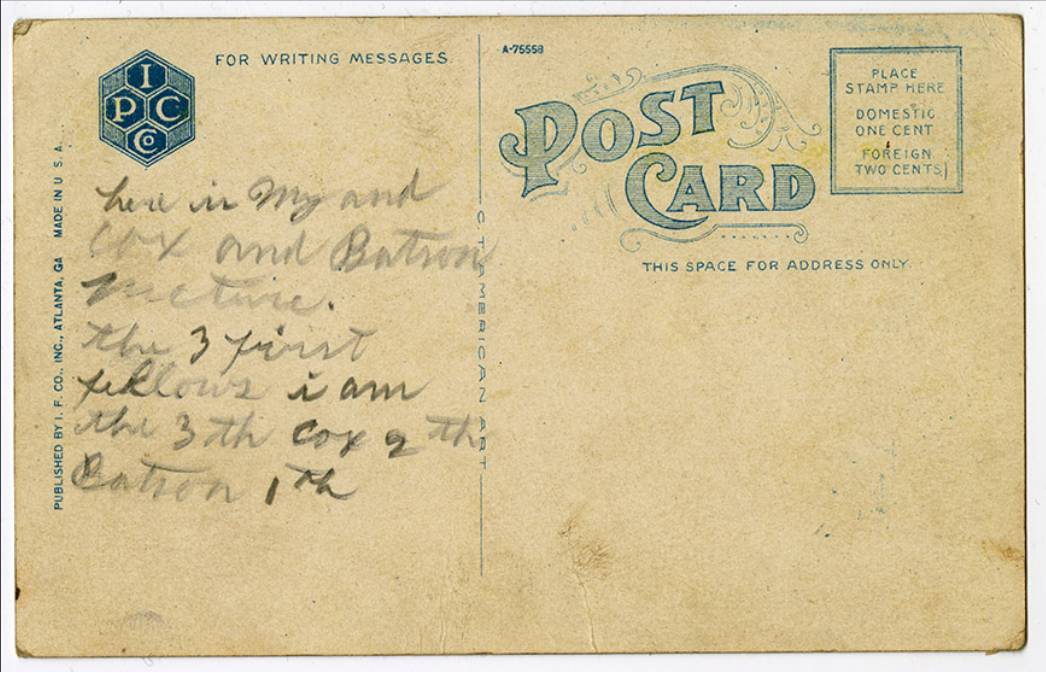 FOR WRITING MESSAGES.
I
P C
Co
here is My and
Cox and Batson
Picture.
the 3 first
fellows i am
the 3 th Cox 2 th
Batson 1 th
PUBLISHED BY I. F. CO., INC., ATLANTA, GA MADE IN U. S. A.
C. T. AMERICAN ART
A-75558
POST
CARD
THIS SPACE FOR ADDRESS ONLY.
PLACE
STAMP HERE
DOMESTIC
ONE CENT
FOREIGN
TWO CENTS